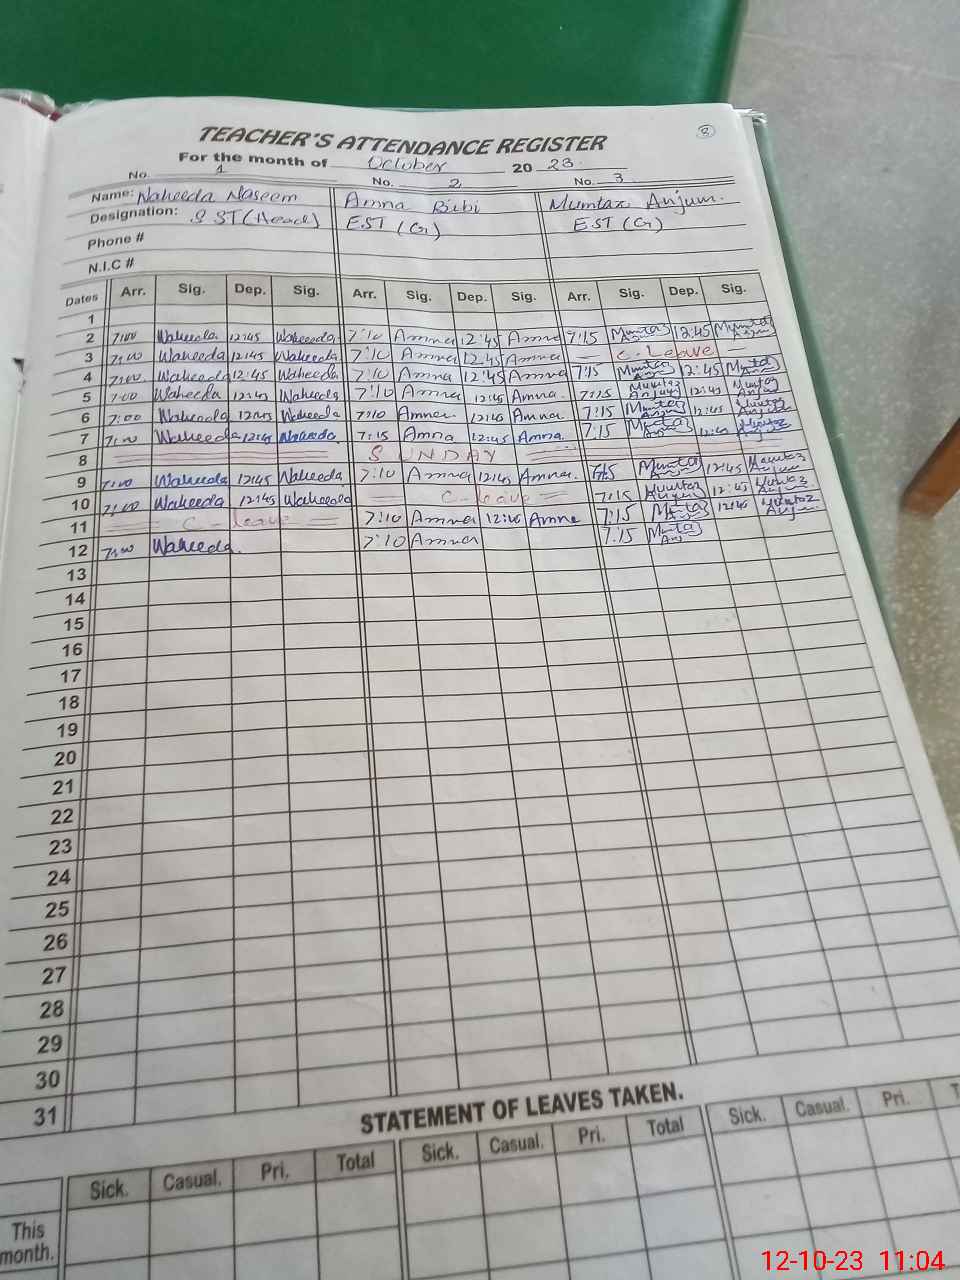 8
TEACHER'S ATTENDANCE REGISTER
For the month of October 20 23
No. 1 No. 2 No. 3
Name: Waheeda Naseem Amna Bibi Mumtaz Anjum.
Designation: SST (Head) EST (G) EST (G)
Phone #
N.I.C #
Dates Arr. Sig. Dep. Sig. Arr. Sig. Dep. Sig. Arr. Sig. Dep. Sig.
1
2 7:00 Waheeda 12:45 Waheeda 7:10 Amna 12:45 Amna 7:15 Mumtaz Anjum 12:45 Mumtaz Anjum
3 7:00 Waheeda 12:45 Waheeda 7:10 Amna 12:45 Amna C. Leave
4 7:00 Waheeda 12:45 Waheeda 7:10 Amna 12:45 Amna 7:15 Mumtaz Anjum 12:45 Mumtaz Anjum
5 7:00 Waheeda 12:45 Waheeda 7:10 Amna 12:45 Amna 7:15 Mumtaz Anjum 12:45 Mumtaz Anjum
6 7:00 Waheeda 12:45 Waheeda 7:10 Amna 12:45 Amna. 7:15 Mumtaz Anjum 12:45 Mumtaz Anjum
7 7:00 Waheeda 12:45 Waheeda 7:15 Amna 12:45 Amna. 7:15 Mumtaz Anjum 12:45 Mumtaz Anjum
8 SUNDAY
9 7:00 Waheeda 12:45 Waheeda 7:10 Amna 12:45 Amna. 7:15 Mumtaz Anjum 12:45 Mumtaz Anjum
10 7:00 Waheeda 12:45 Waheeda C-leave 7:15 Mumtaz Anjum 12:45 Mumtaz Anjum
11 C-leave 7:10 Amna 12:45 Amna 7:15 Mumtaz Anjum 12:45 Mumtaz Anjum
12 7:00 Waheeda. 7:10 Amna 7:15 Mumtaz Anjum
13
14
15
16
17
18
19
20
21
22
23
24
25
26
27
28
29
30
31
STATEMENT OF LEAVES TAKEN.
Sick. Casual. Pri. Total Sick. Casual. Pri. Total Sick. Casual. Pri. T
This
month.
12-10-23 11:04